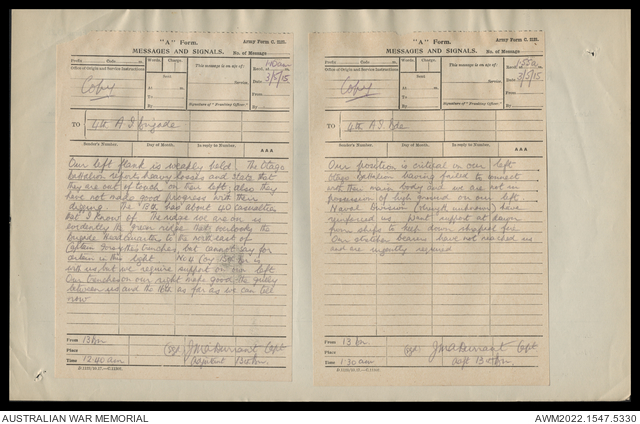 "A" Form.
Army Form C. 2121.
MESSAGES AND SIGNALS.
No. of Message
Prefix Code m.
Words.
Charge.
This message is on a/c of:
Recd. at 1.40 am
Office of Origin and Service Instructions.
Copy
Sent
At m.
To
By
Service.
Date 3/5/15
From
By
(Signature of "Franking Officer.")
TO
4th A I Brigade
Sender's Number.
Day of Month.
In reply to Number.
AAA
Our left flank is weakly held. The Otago
Battalion reports heavy losses and state that
they are out of touch on their left also they
have not made good progress with their
digging. The 13th has about 40 casualties
that I know of. The ridge we are on is
evidently the given ridge that overlooks the
Brigade Headquarters to the north east of
Captain trenches, but cannot say for
certain in this light. No 4 Coy 15th Bn is
with us but we require support on our left
Our trenches on our right make good the gully
between us and the 16th as far as we can tell
now
From 13 bn
Place
Time 12.40 am
(Sgd) J M A Durrant Capt
Adjutant 13th bn.
"A" Form.
Army Form C. 2121.
MESSAGES AND SIGNALS.
No. of Message
Prefix Code m.
Words.
Charge.
This message is on a/c of:
Recd. at 1.55 a.m.
Office of Origin and Service Instructions.
Copy
Sent
At m.
To
By
Service.
Date 3/5/15
From
By
(Signature of "Franking Officer.")
TO
4th A.I. Bde
Sender's Number.
Day of Month.
In reply to Number.
AAA
Our position is critical on our left
Otago Battalion having failed to connect
with their main body and we are not in
possession of high ground on our left.
Naval Division (strength unknown) have
reinforced us. Want support at dawn
from ships to keep down shrapnel fire
Our stretcher bearers have not reached us
and are urgently required
From 13 bn.
Place
Time 1.30 am
(Sgd) J M A Durrant Capt
Adjt 13th bn.
AUSTRALIAN WAR MEMORIAL
AWM2022.1547.5330